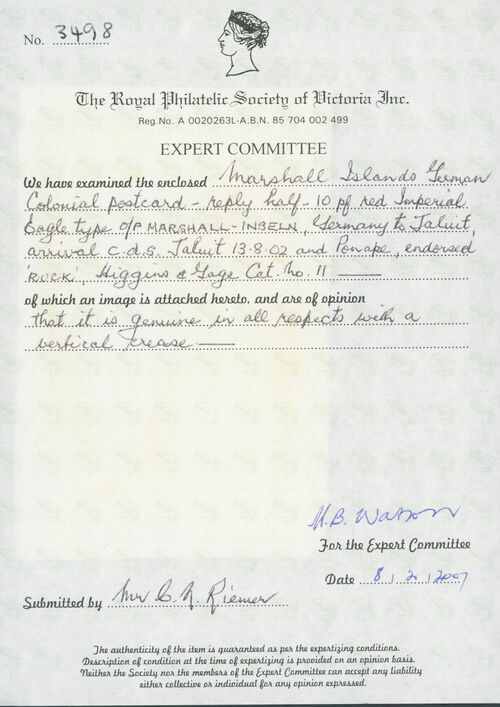 No. 3498
The Royal Philatelic Society of Victoria Inc.
Reg.No. A 0020263L-A.B.N. 85 704 002 499
EXPERT COMMITTEE
We have examined the enclosed Marshall Islands German
Colonial postcard - reply half - 10 pf red Imperial
Eagle type O/P MARSHALL-INSELN, Germany to Jaluit,
arrival c.d.s. Jaluit 13.8.02 and Ponape, endorsed
'RUCK', Higgins & Gage Cat. No. 11
of which an image is attached hereto, and are of opinion
that it is genuine in all respects with a
vertical crease
M.B. Watson
For the Expert Committee
Date 8 / 2 / 2007
Submitted by Mr C. N. Riemer
The authenticity of the item is guaranteed as per the expertizing conditions.
Description of condition at the time of expertizing is provided on an opinion basis.
Neither the Society nor the members of the Expert Committee can accept any liability
either collective or individual for any opinion expressed.